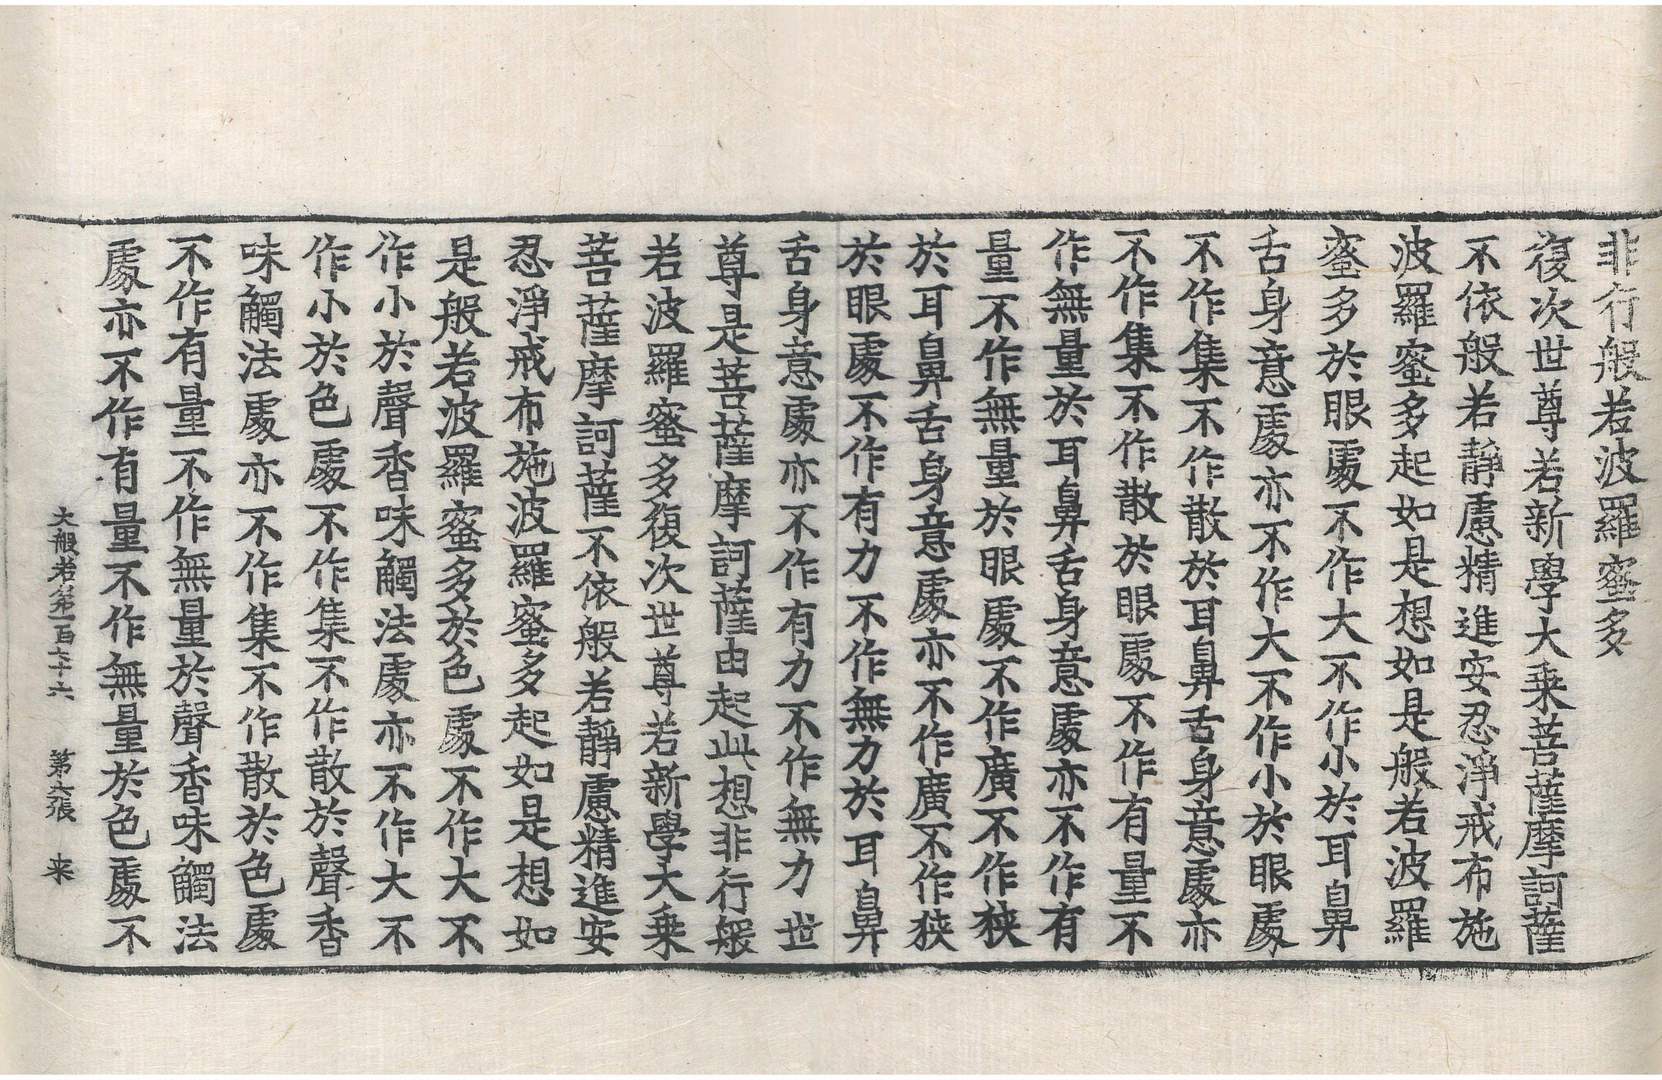 非行般若波羅蜜多
復次世尊若新學大乗菩薩摩訶薩
不依般若靜慮精進安忍淨戒布施
波羅蜜多起如是想如是般若波羅
蜜多於眼處不作大不作小於耳鼻
舌身意處亦不作大不作小於眼處
不作集不作散於耳鼻舌身意處亦
不作集不作散於眼處不作有量不
作無量於耳鼻舌身意處亦不作有
量不作無量於眼處不作廣不作狹
於耳鼻舌身意處亦不作廣不作狹
於眼處不作有力不作無力於耳鼻
舌身意處亦不作有力不作無力世
尊是菩薩摩訶薩由起此想非行般
若波羅蜜多復次世尊若新學大乗
菩薩摩訶薩不依般若靜慮精進安
忍淨戒布施波羅蜜多起如是想如
是般若波羅蜜多於色處不作大不
作小於聲香味觸法處亦不作大不
作小於色處不作集不作散於聲香
味觸法處亦不作集不作散於色處
不作有量不作無量於聲香味觸法
處亦不作有量不作無量於色處不
大般若第一百六十六 第六張 来